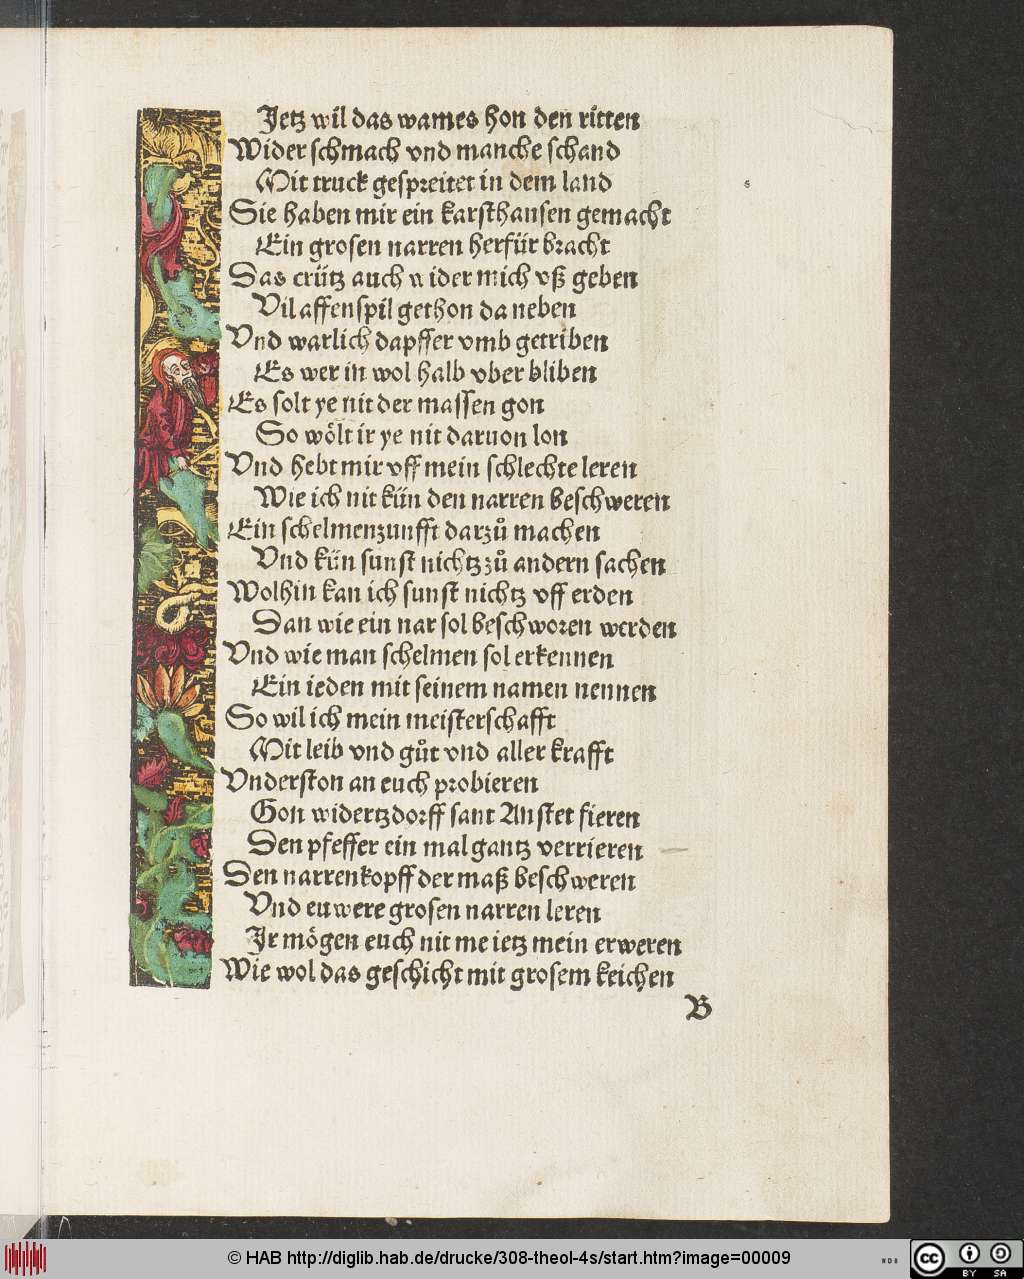 Jetz wil das wames hon den ritten
Wider schmach vnd manche schand
Mit truck gespreitet in dem land
Sie haben mir ein karsthansen gemacht
Ein grosen narren herfür bracht
Das crütz auch wider mich vß geben
Vil affenspil gethon da neben
Vnd warlich dapffer vmb getriben
Es wer in wol halb vber bliben
Es solt ye nit der massen gon
So wölt ir ye nit daruon lon
Vnd hebt mir vff mein schlechte leren
Wie ich nit kün den narren beschweren
Ein schelmenzunfft darzuͦ machen
Vnd kün sunst nichtz zuͦ andern sachen
Wolhin kan ich sunst nichtz vff erden
Dan wie ein nar sol beschworen werden
Vnd wie man schelmen sol erkennen
Ein ieden mit seinem namen nennen
So wil ich mein meisterschafft
Mit leib vnd guͦt vnd aller krafft
Vnderston an euch probieren
Gon widertzdorff sant Anstet fieren
Den pfeffer ein mal gantz verrieren
Den narrenkopff der maß beschweren
Vnd euwere grosen narren leren
Ir mögen euch nit me ietz mein erweren
Wie wol das geschicht mit grosem keichen
B
© HAB http://diglib.hab.de/drucke/308-theol-4s/start.htm?image=00009
WDB
cc BY SA